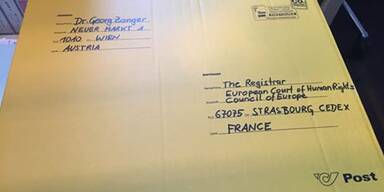 Dr. Georg Zanger
NEUER MARKT 1
1010 WIEN
AUSTRIA
The Registrar
European Court of Human Rights
Council of Europe
67075 STRASBOURG CEDEX
FRANCE
Post